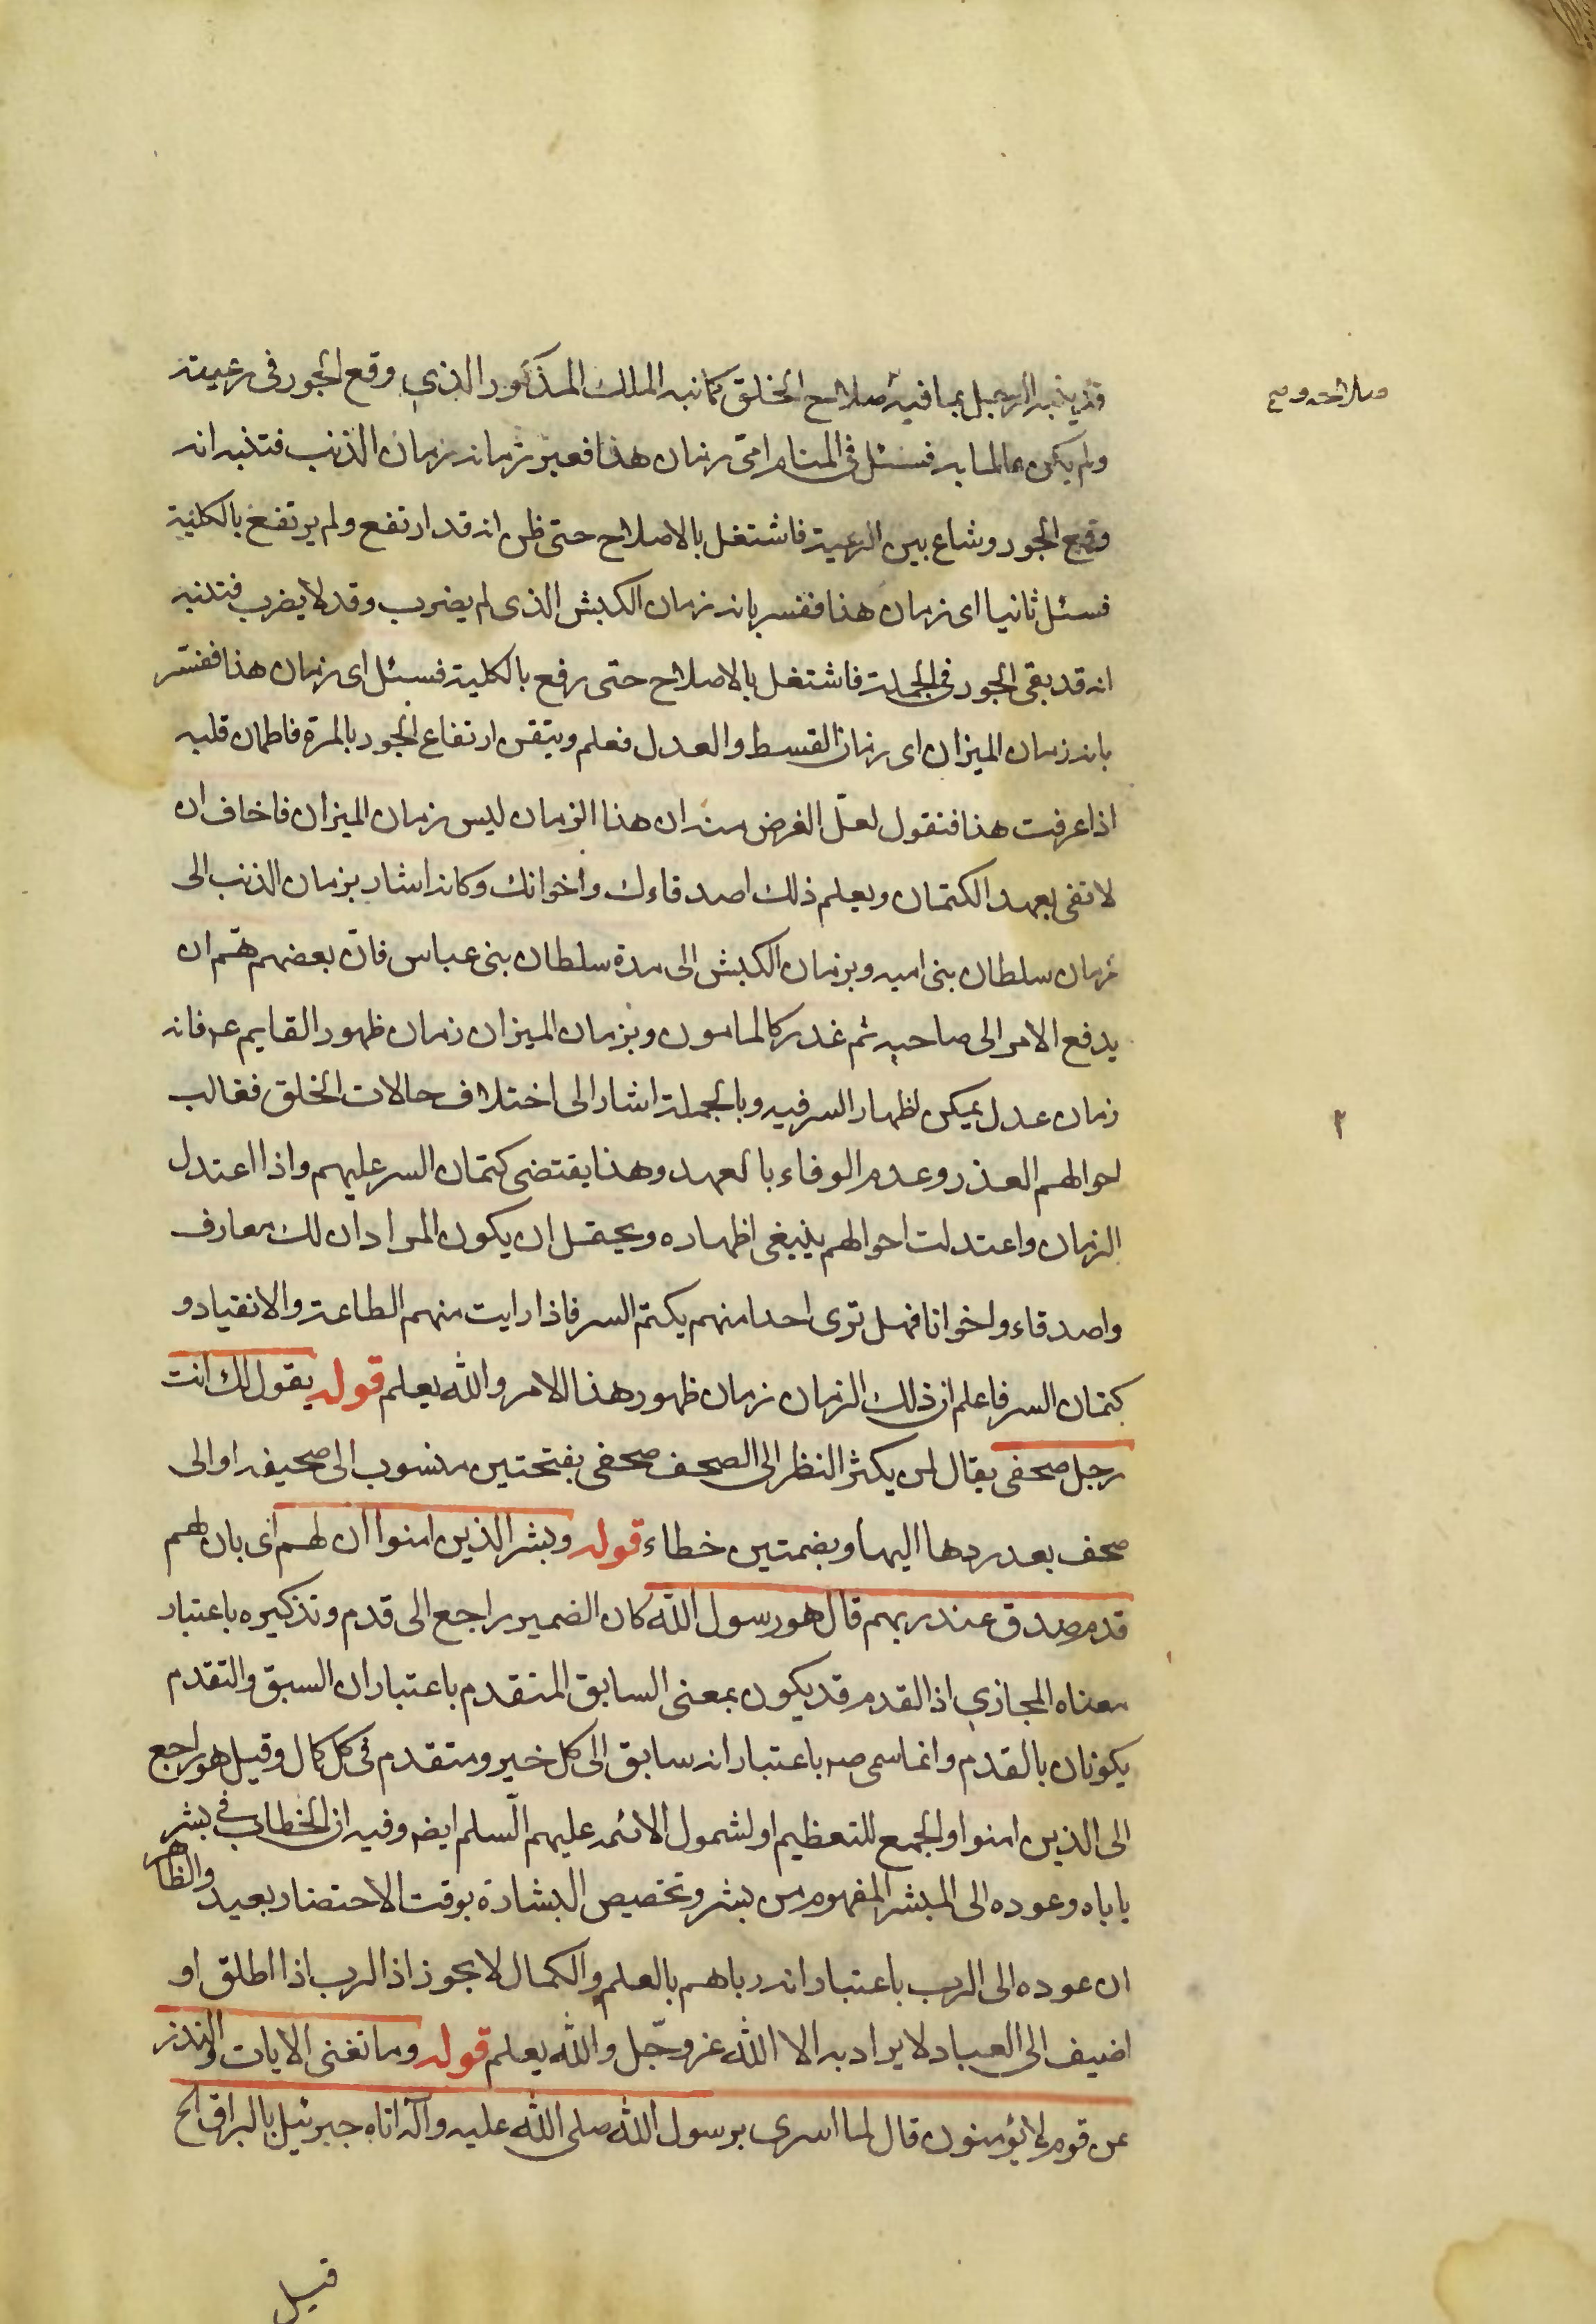 قد ينبه الرجل بما فيه صلاح الخلق كما نبه الملك المذكور الذي وقع الجور في رعيته
ولم يكن عالما به فسئل في المنام اى زمان هذا فعبر بزمانه زمان الذئب فتنبه انه
وقع الجور وشاع بين الرعية فاشتغل بالاصلاح حتى ظن انه قد ارتفع ولم يرتفع بالكلية
فسئل ثانيا اى زمان هذا ففسر بانه زمان الكبش الذى لم يضرب وقد لا يضرب فتنبه
انه قد بقى الجور في الجملة فاشتغل بالاصلاح حتى رفع بالكلية فسئل اى زمان هذا ففسّر
بانه زمان الميزان اى زمان القسط والعدل فعلم وتيقن ارتفاع الجور بالمرة فاطمان قلبه
اذا عرفت هذا فنقول لعلّ الغرض منه ان هذا الزمان ليس زمان الميزان فاخاف ان
لا تفى بعهد الكتمان ويعلم ذلك اصدقاءك واخوانك وكانه اشار بزمان الذئب الى
زمان سلطان بنى اميه وبزمان الكبش الى مدة سلطان بنى عباس فانّ بعضهم همّ ان
يدفع الامر الى صاحبه ثم غدر كالمامون وبزمان الميزان زمان ظهور القايم ع فانه
زمان عدل يمكن اظهار السر فيه وبالجملة اشار الى اختلاف حالات الخلق فغالب
احوالهم العذر وعدم الوفاء بالعهد وهذا يقتضى كتمان السر عليهم واذا اعتدل
الزمان واعتدلت احوالهم ينبغى اظهاره ويحتمل ان يكون المراد ان لك معارف
واصدقاء واخوانا فهل ترى احدا منهم يكتم السر فاذا رايت منهم الطاعة والانقياد و
كتمان السر فاعلم ان ذلك الزمان زمان ظهور هذا الامر والله يعلم قوله يقول لك انت
رجل صحفى يقال لمن يكثر النظر الى الصحف صحفى بفتحتين منسوب الى صحيفه او الى
صحف بعد ردها اليها وبضمتين خطاء قوله وبشر الذين امنوا ان لهم اى بان لهم
قدم صدق عند ربهم قال هو رسول الله كان الضمير راجع الى قدم وتذكيره باعتبار
معناه المجازي اذ القدم قد يكون بمعنى السابق المتقدم باعتبار ان السبق والتقدم
يكونان بالقدم وانما سمى ص به باعتبار انه سابق الى كل خير ومتقدم في كل كمال وقيل هو راجع
الى الذين امنوا والجمع للتعظيم او لشمول الائمه عليهم السّلم ايضه وفيه ان الخطاب في بشر
ياباه وعوده الى المبشر المفهوم من بشر وتخصيص البشارة بوقت الاحتضار بعيد والظاهر
ان عوده الى الرب باعتبار انه رباهم بالعلم والكمال لا يجوز اذ الرب اذا اطلق او
اضيف الى العباد لا يراد به الا الله عز وجّل والله يعلم قوله وما تغنى الايات والنذر
عن قوم لا يؤمنون قال لما اسرى برسول الله صلى الله عليه وآله اتاه جبرئيل بالبراق الخ
قيل